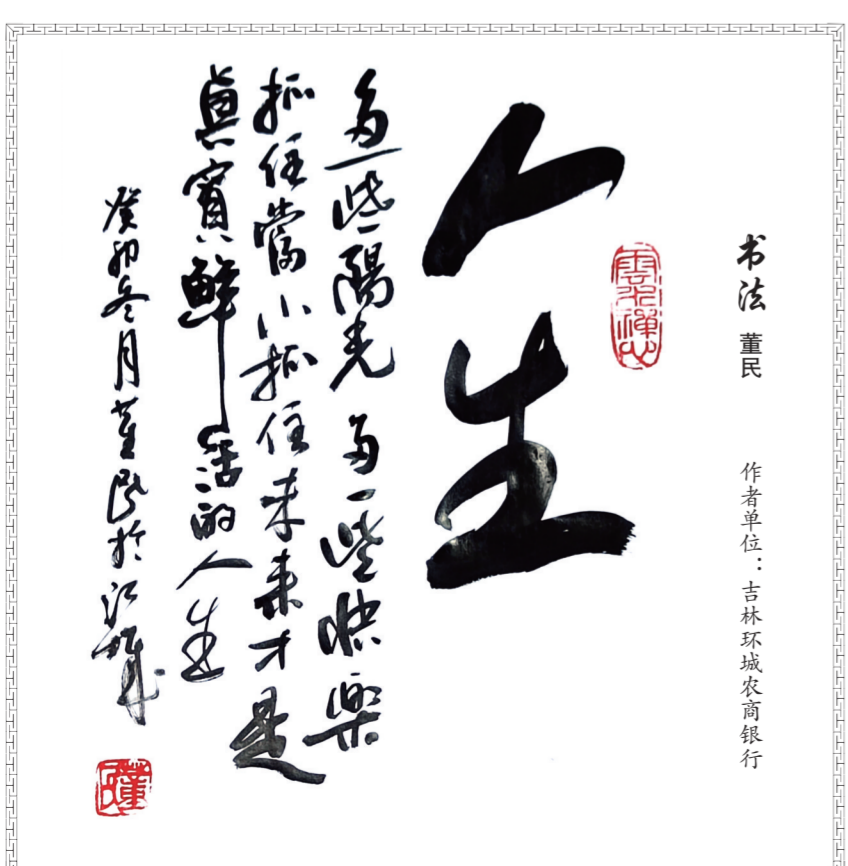 书法 董民
作者单位：吉林环城农商银行
雲水禪心
人生
多一些陽光多一些快樂
抓住當下抓住未来才是
真實鮮活的人生
癸卯冬月董民於江城
董民